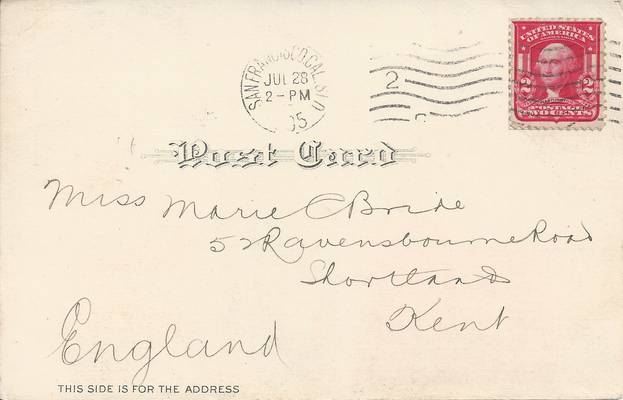 UNITED STATES
OF AMERICA
SAN FRANCISCO, CAL. S/D
JUL 28
2-PM
05
2
2 2
POSTAGE
TWO CENTS
Post Card
Miss Marie C Bride
52 Ravensbourne Road
Shortlands
Kent
England
THIS SIDE IS FOR THE ADDRESS